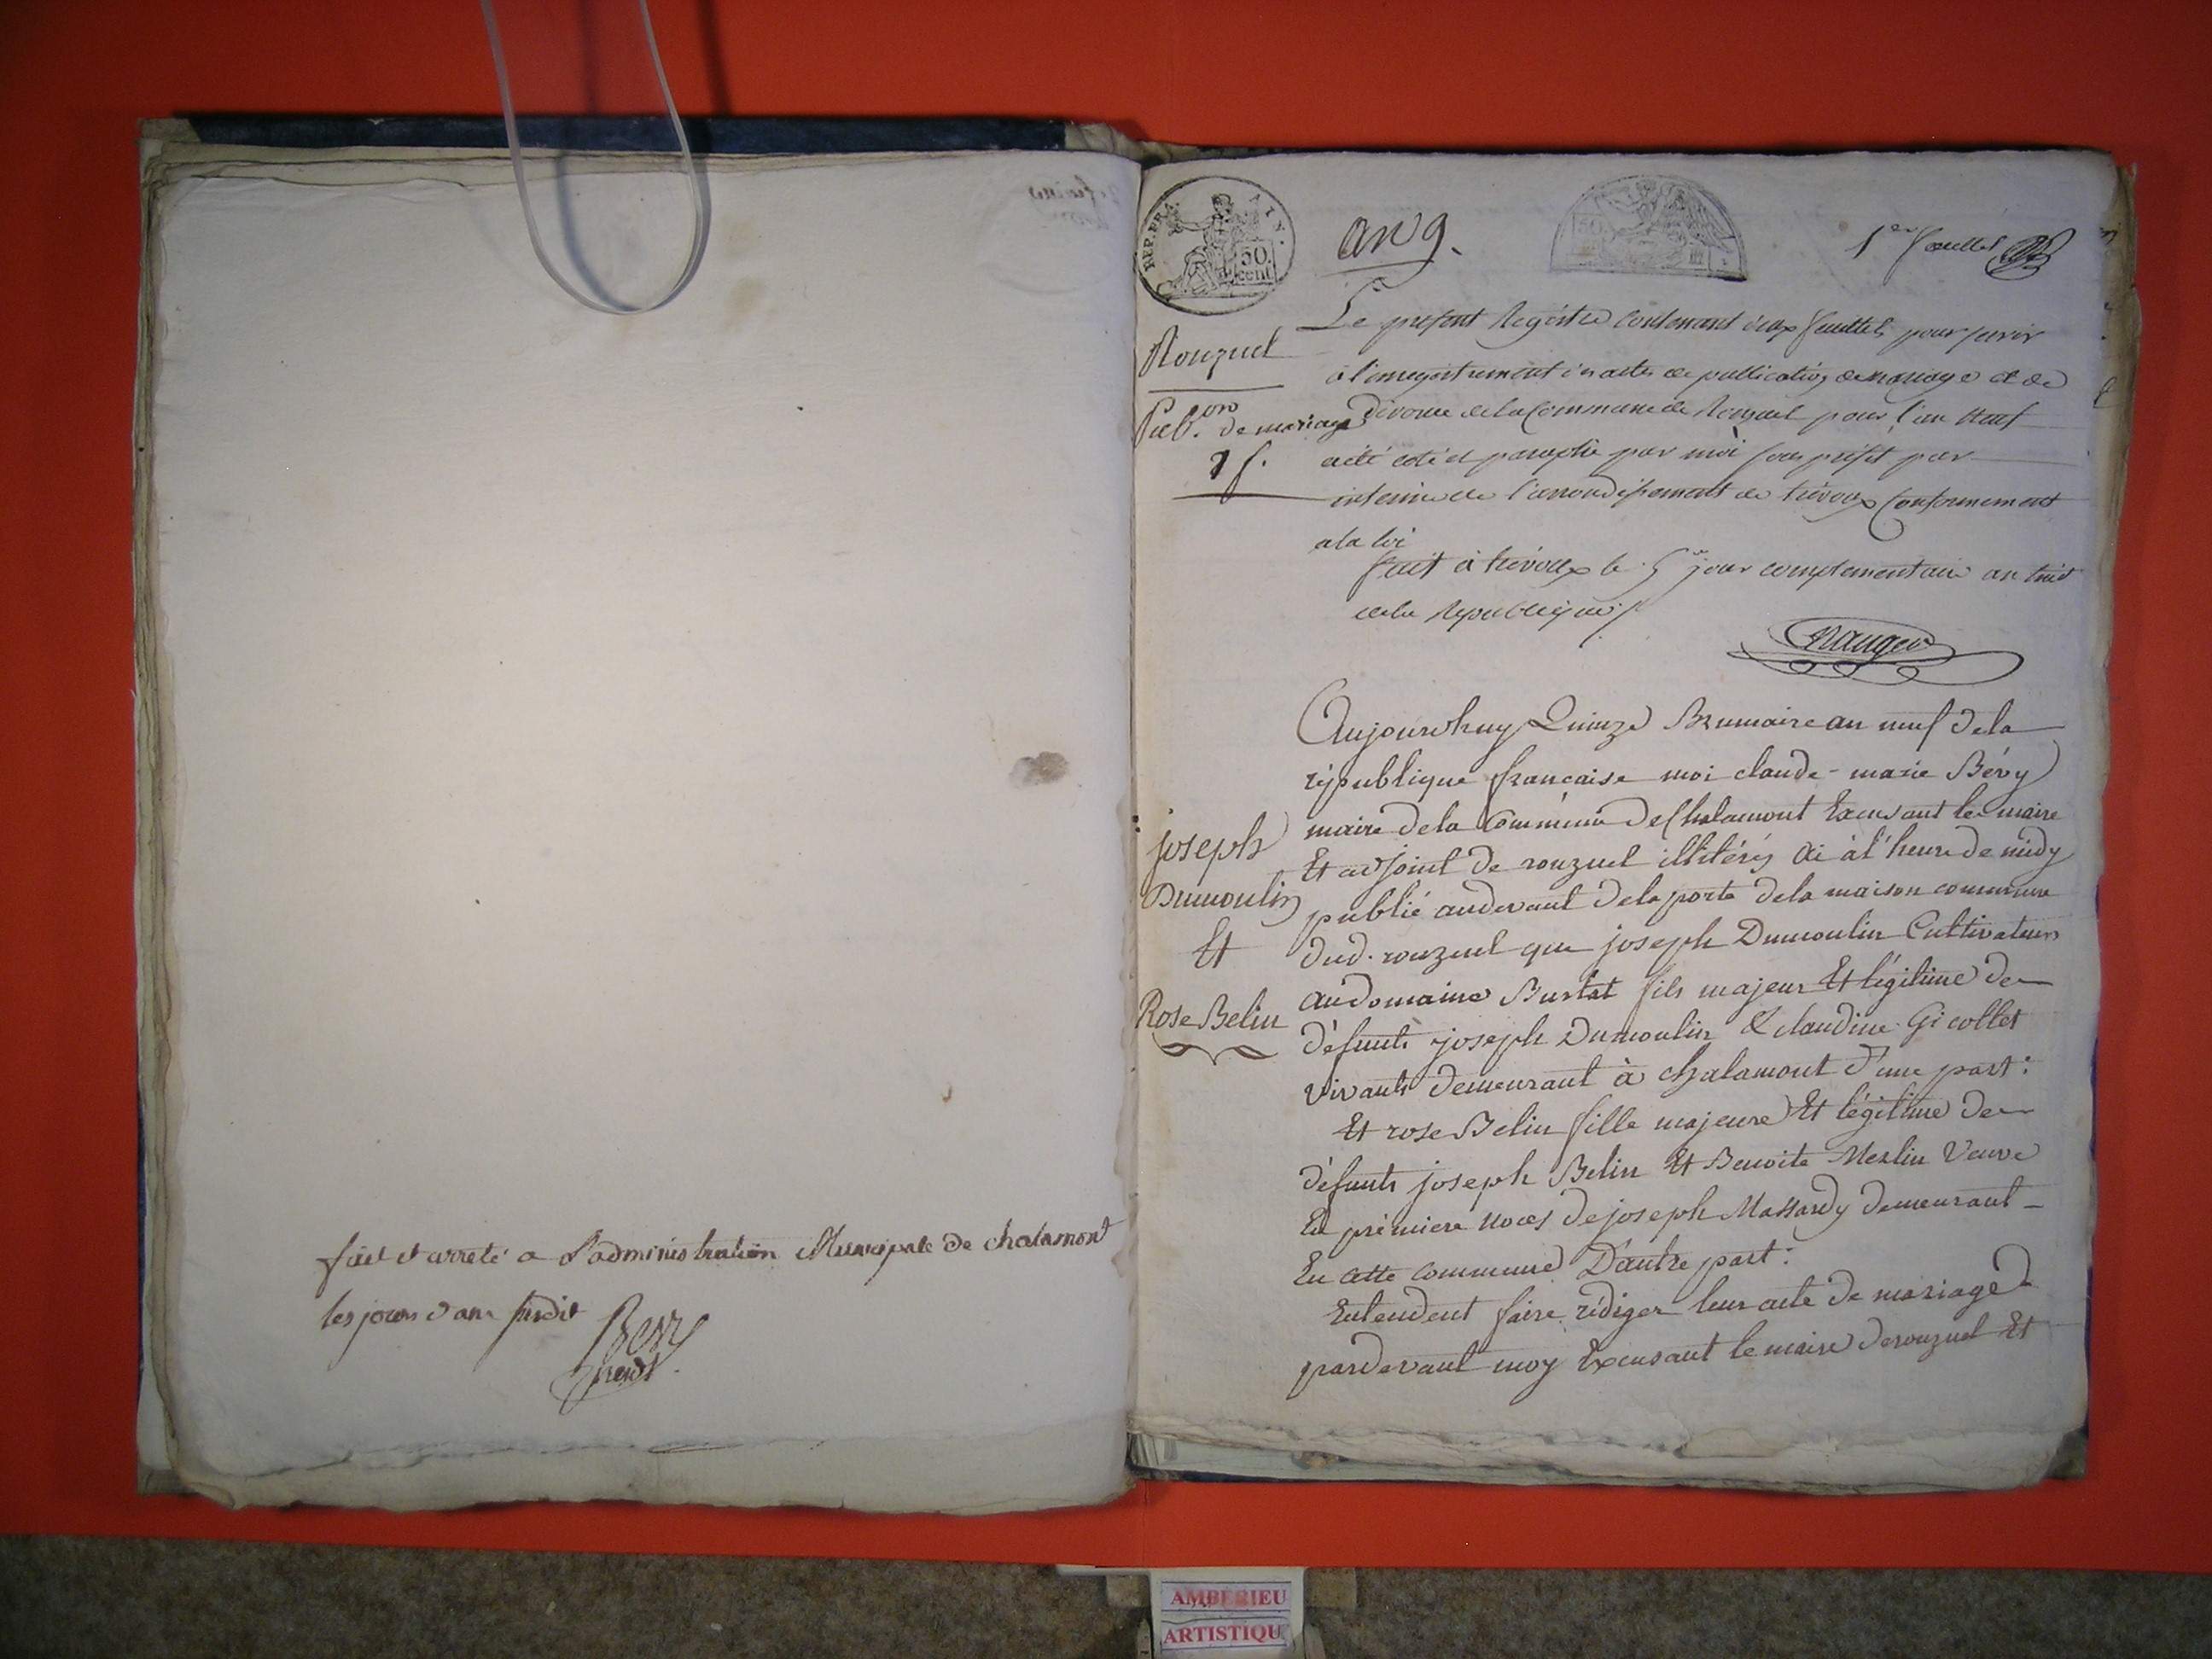 fait et arreté a l'administration Municipale de chalamont
les jours et an susdit
Bevy
REP. FRA.
50.
cent
an 9.
1er feuillet
Rouzuel
Pub.on de mariage
1 f.
Le présent Registre contenant deux feuillets pour servir
à l'enregistrement des actes de publication de mariage et de
divorce de la Commune de Rouzuel pour l'an neuf
a été coté et paraphé par moi sous préfet par
interim de l'arrondissement de trévoux Conformement
a la loi
fait à trévoux le 5e jour complementaire an huit
de la République
Aujourd'huy Quinze Brumaire an neuf de la
république française moi claude-marie Bévy
maire de la Commune de Chalamont Excusant les maire
Et adjoint de rouzuel illitérés ai à l'heure de midy
publié au devant de la porte de la maison commune
dud. rouzuel que joseph Dumoulin Cultivateur
au domaine Burlat fils majeur Et légitime de
défunts joseph Dumoulin & claudine Gicollet
vivants demeurant à chalamont d'une part:
Et rose Belin fille majeure Et légitime de
défunts joseph Belin Et Benoite Merlin Veuve
En premiere noces de joseph Massardy demeurant
En cette commune D'autre part:
Entendent faire rédiger leur acte de mariage
pardevant moy Excusant le maire de rouzuel Et
joseph
Dumoulin
Et
Rose Belin
AMBERIEU
ARTISTIQU